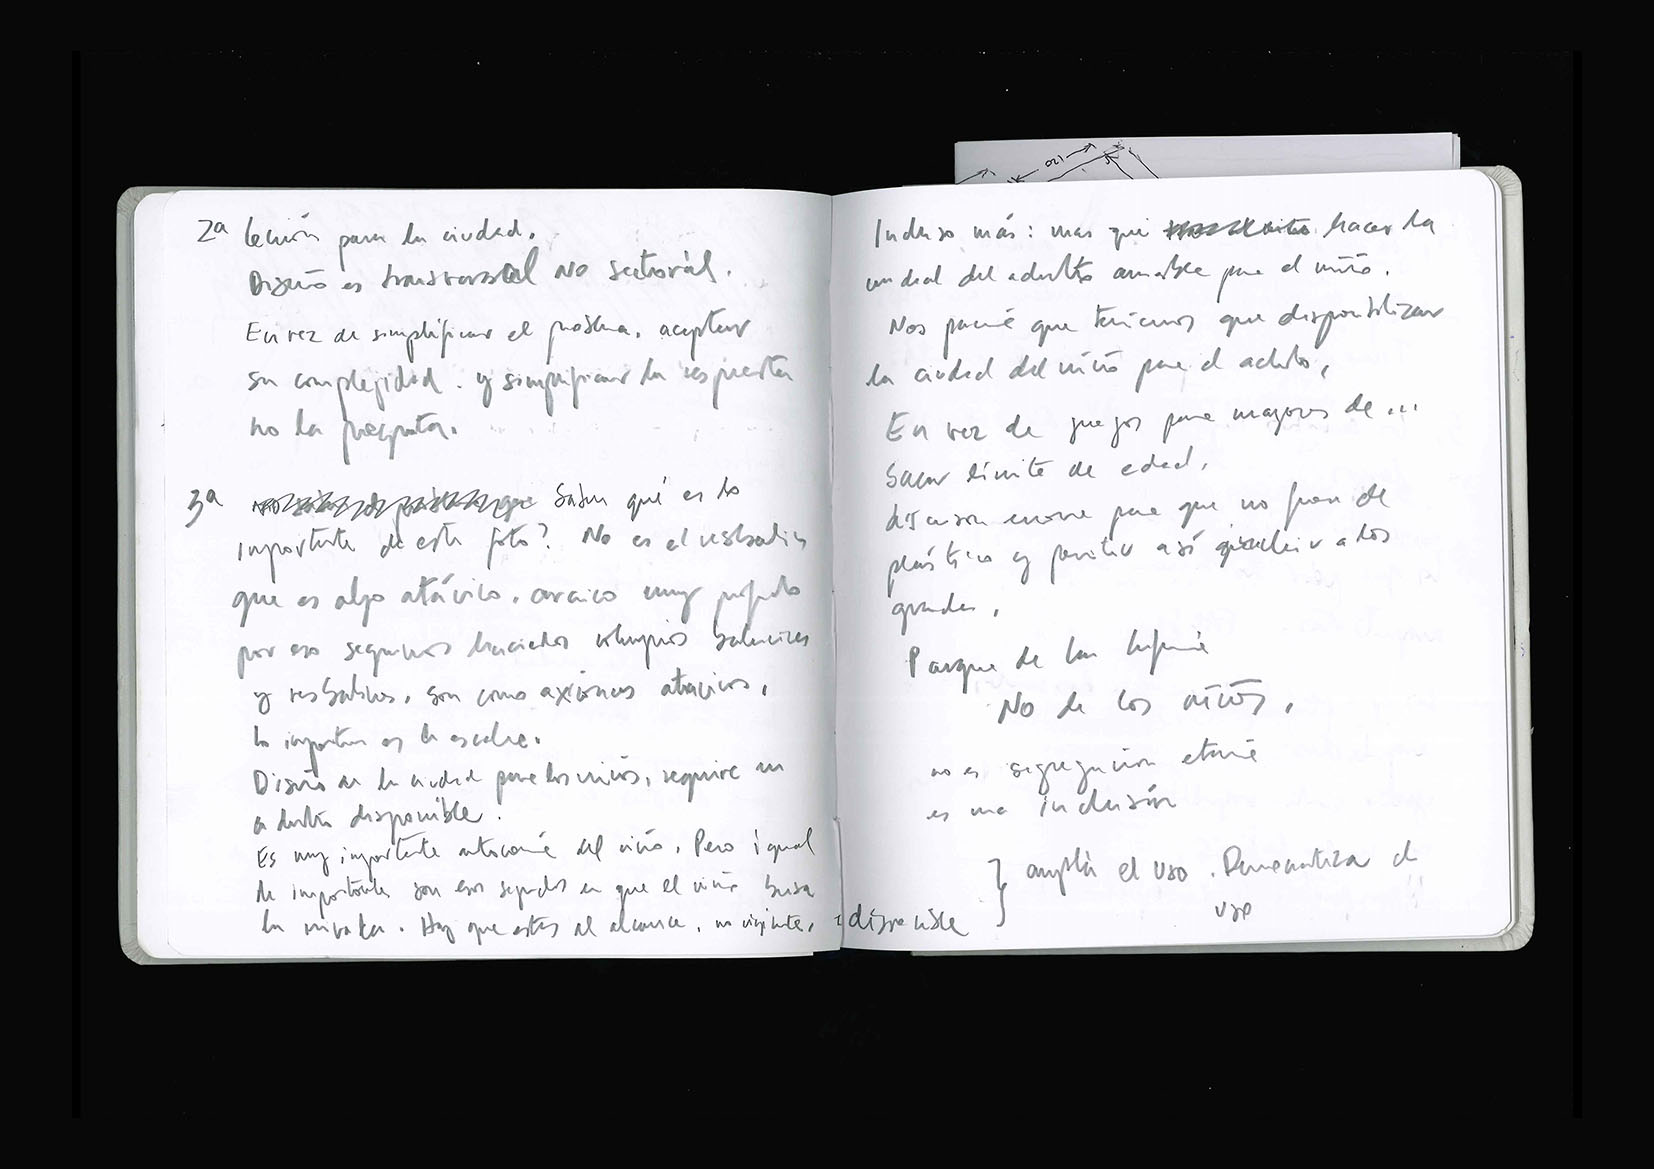 120
2ª lección para la ciudad.
Diseño es transversal no sectorial.
En vez de simplificar el problema, aceptar
su complejidad. y simplificar la respuesta
no la pregunta.
3ª Saben qué es lo
importante de esta foto? No es el resbalín
que es algo atávico, arcaico muy profundo
por eso seguimos haciendo columpios balancines
y resbalines, son como axiomas atávicos.
lo importante es la escalera.
Diseño en la ciudad para los niños, requiere un
adulto disponible.
Es muy importante autonomía del niño. Pero igual
de importante son esos segundos en que el niño busca
la mirada. Hay que estar al alcance, no vigilante, disponible
Incluso más: mas que hacer la
ciudad del adulto amable para el niño.
Nos parece que tenemos que disponibilizar
la ciudad del niño para el adulto,
En vez de juegos para mayores de ...
Sacar límite de edad,
para que no fueran de
plástico y permitir así a los
grandes,
Parque de la Infancia
No de los niños,
no es segregación etaria
es una inclusión
} amplía el uso. Democratiza el
uso